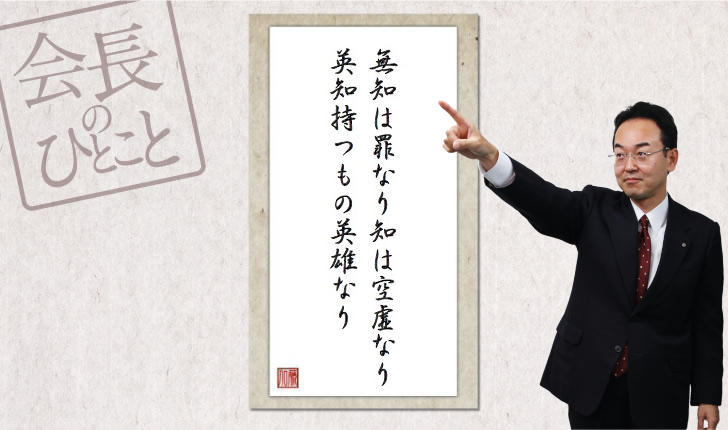 会長
の
ひとこと
無知は罪なり知は空虚なり
英知持つもの英雄なり